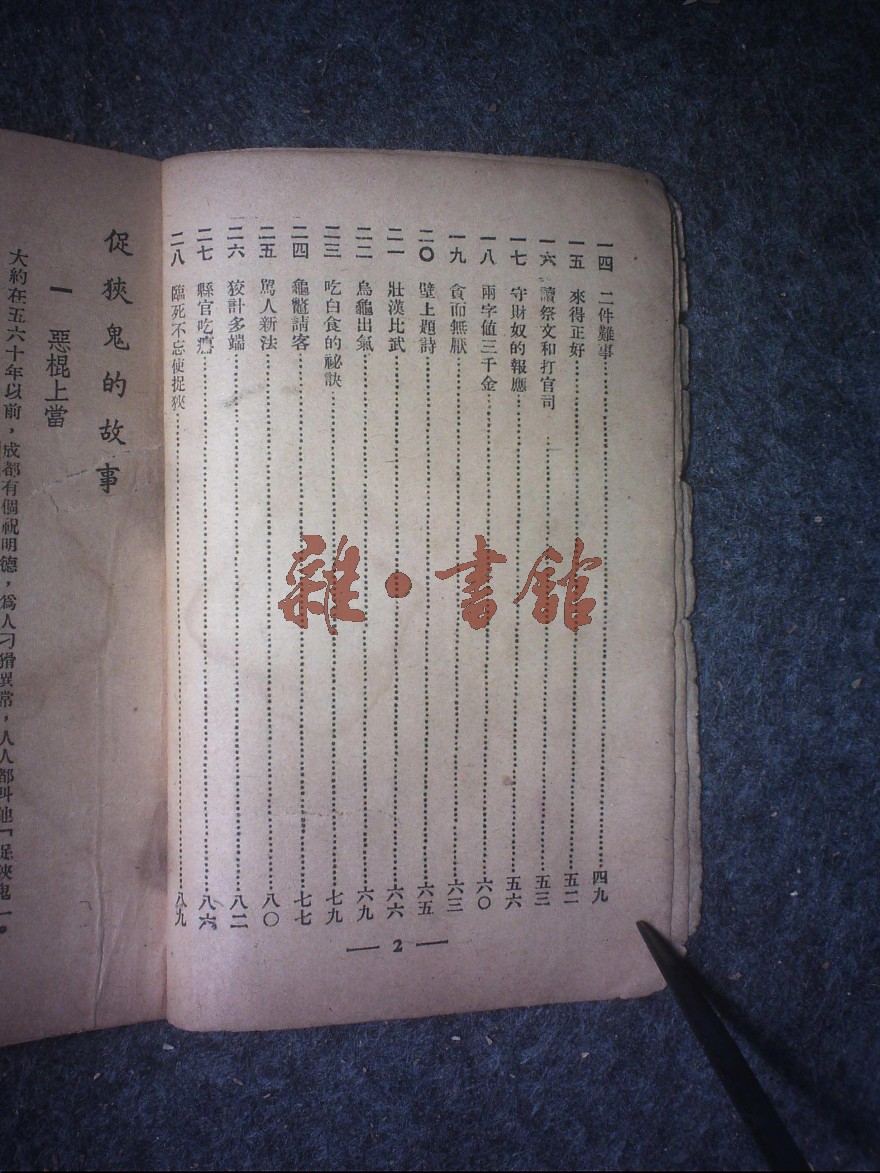 一四 二件難事……四九
一五 來得正好……五二
一六 讀祭文和打官司……五三
一七 守財奴的報應……五六
一八 兩字值三千金……六〇
一九 貪而無厭……六三
二〇 壁上題詩……六五
二一 壯漢比武……六六
二二 烏龜出氣……六九
二三 吃白食的祕訣……七九
二四 龜鼈請客……七七
二五 罵人新法……八〇
二六 狡計多端……八二
二七 縣官吃癟……八六
二八 臨死不忘便捉狹……八九
— 2 —
促狹鬼的故事
一 惡棍上當
大約在五六十年以前，成都有個祝明德，爲人刁猾異常，人人都叫他「促狹鬼」。
雜·書館